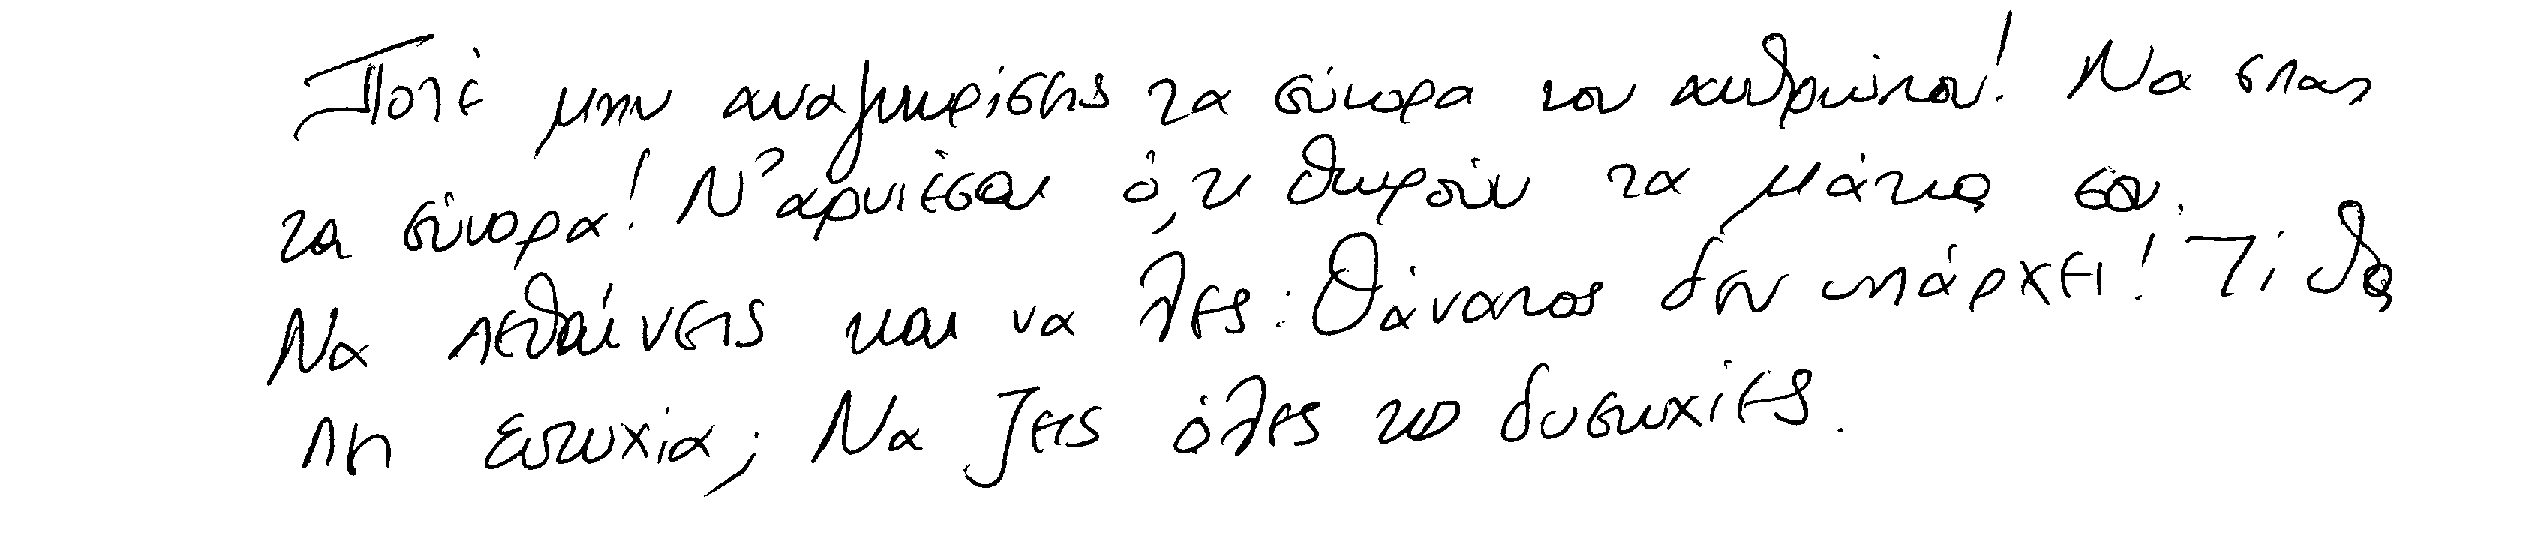 Ποτέ μην αναγνωρίσεις τα σύνορα του ανθρώπου! Να σπας
τα σύνορα! Ν' αρνιέσαι ό,τι θωρούν τα μάτια σου.
Να πεθαίνεις και να λες: Θάνατος δεν υπάρχει! Τι θα
πει ευτυχία; Να ζεις όλες τις δυστυχίες.